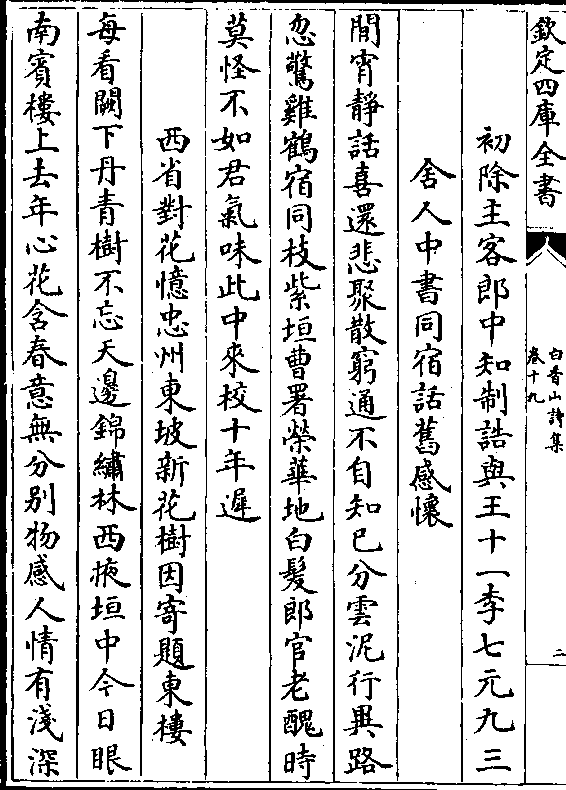 欽定四庫全書
白香山詩集
卷十九
二
初除主客郎中知制誥與王十一李七元九三
舍人中書同宿話舊感懷
閒宵靜話喜還悲聚散窮通不自知已分雲泥行異路
忽驚雞鶴宿同枝紫垣曹署榮華地白髮郎官老醜時
莫怪不如君氣味此中來校十年遲
西省對花憶忠州東坡新花樹因寄題東樓
每看闕下丹青樹不忘天邊錦繡林西掖垣中今日眼
南賓樓上去年心花含春意無分别物感人情有淺深